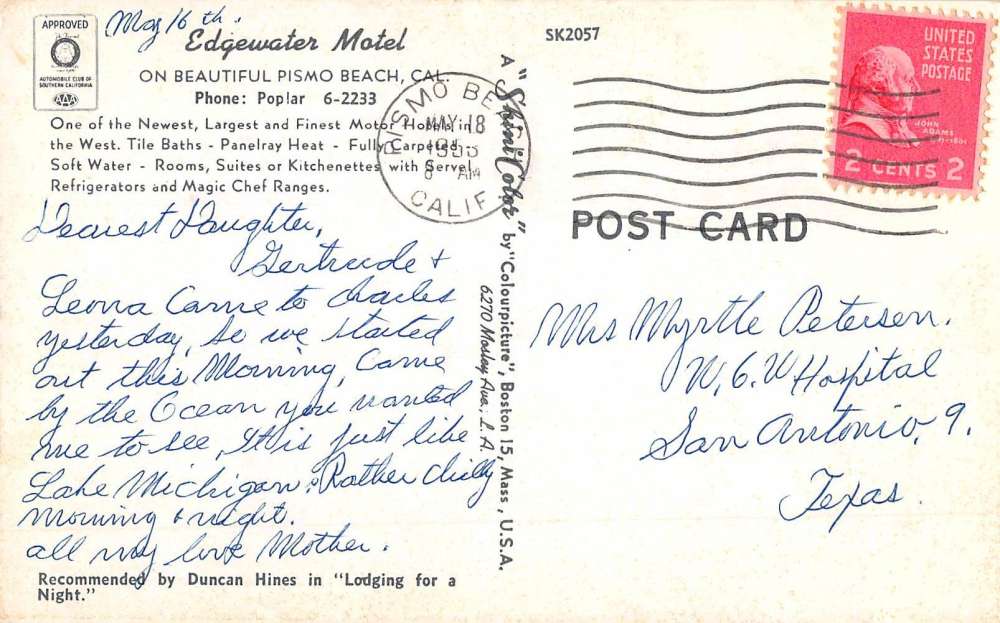 APPROVED
AUTOMOBILE CLUB OF
SOUTHERN CALIFORNIA
AAA
May 16 th.
Edgewater Motel
ON BEAUTIFUL PISMO BEACH, CAL.
Phone: Poplar 6-2233
One of the Newest, Largest and Finest Motor Hotels in
the West. Tile Baths - Panelray Heat - Fully Carpeted -
Soft Water - Rooms, Suites or Kitchenettes with Servel
Refrigerators and Magic Chef Ranges.
Dearest Daughter,
Gertrude &
Leona Came to Charles
yesterday, so we started
out this Morning, Came
by the Ocean you wanted
me to see, It is just like
Lake Michigan. Rather chilly
morning & night.
all my love Mother.
Recommended by Duncan Hines in "Lodging for a
Night."
A "ShiniColor" by "Colourpicture", Boston 15, Mass., U.S.A.
6270 Mosley Ave; L.A.
SK2057
PISMO BEACH
MAY 18
AM
CALIF
UNITED
STATES
POSTAGE
JOHN
ADAMS
2 CENTS 2
POST CARD
Mrs Myrtle Petersen.
W.O.W Hospital
San Antonio, 9.
Texas.